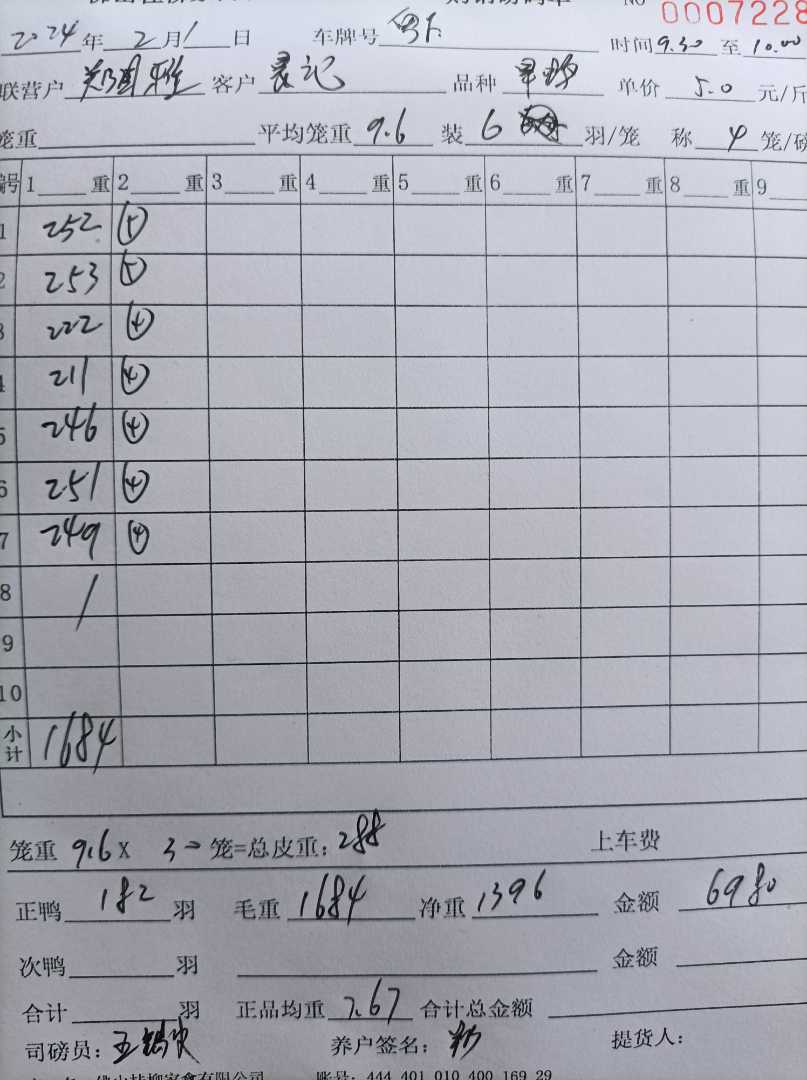 NO 0007228
2024年2月1日 车牌号 时间9.30至10.00
联营户 郑国雅 客户 记 品种 单价 5.0 元/斤
笼重 平均笼重 9.6 装 6 羽/笼 称 4 笼/磅
编号 1 重 2 重 3 重 4 重 5 重 6 重 7 重 8 重 9
1 252 ⑤
2 253 ⑤
3 222 ④
4 211 ④
5 246 ④
6 251 ④
7 249 ④
8 /
9
10
小计 1684
笼重 9.6 X 30 笼=总皮重: 288 上车费
正鸭 182 羽 毛重 1684 净重 1396 金额 6980
次鸭 羽 金额
合计 羽 正品均重 7.67 合计总金额
司磅员: 王 养户签名: 提货人:
账号: 444 401 010 400 169 29